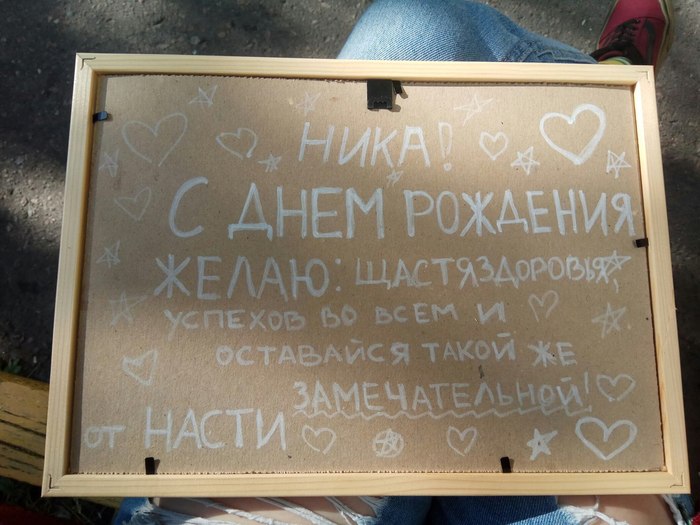 НИКА!
С ДНЕМ РОЖДЕНИЯ
ЖЕЛАЮ: ЩАСТЯ ЗДОРОВЬЯ,
УСПЕХОВ ВО ВСЕМ И
ОСТАВАЙСЯ ТАКОЙ ЖЕ
ЗАМЕЧАТЕЛЬНОЙ!
от НАСТИ